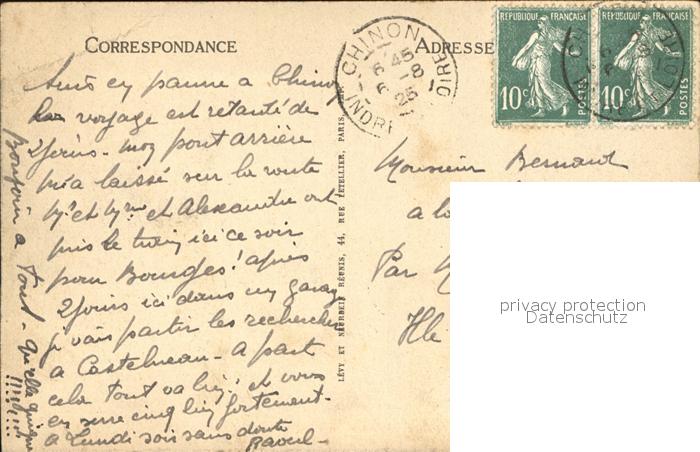 CORRESPONDANCE
ADRESSE
CHINON
6 45
6 -8
25
INDRE
RÉPUBLIQUE FRANÇAISE
10c
POSTES
RÉPUBLIQUE FRANÇAISE
10c
POSTES
Suis en panne a Chinon
voyage est retardé de
2 jours - mon pont arrière
m'a laissé sur la route
Mr et Mme et Alexandre ont
pris le train ici ce soir
pour Bourges! après
2 jours ici dans un garage
je vais partir les rechercher
a Castelneau - a part
cela tout va bien! et vous
en serre cinq bien fortement -
a Lundi soir sans doute
Raoul -
Bonjour a Tous -
LÉVY ET NEURDEIN RÉUNIS, 44, RUE LETELLIER, PARIS
Monsieur Bernard
a la
Par
Ille
privacy protection
Datenschutz